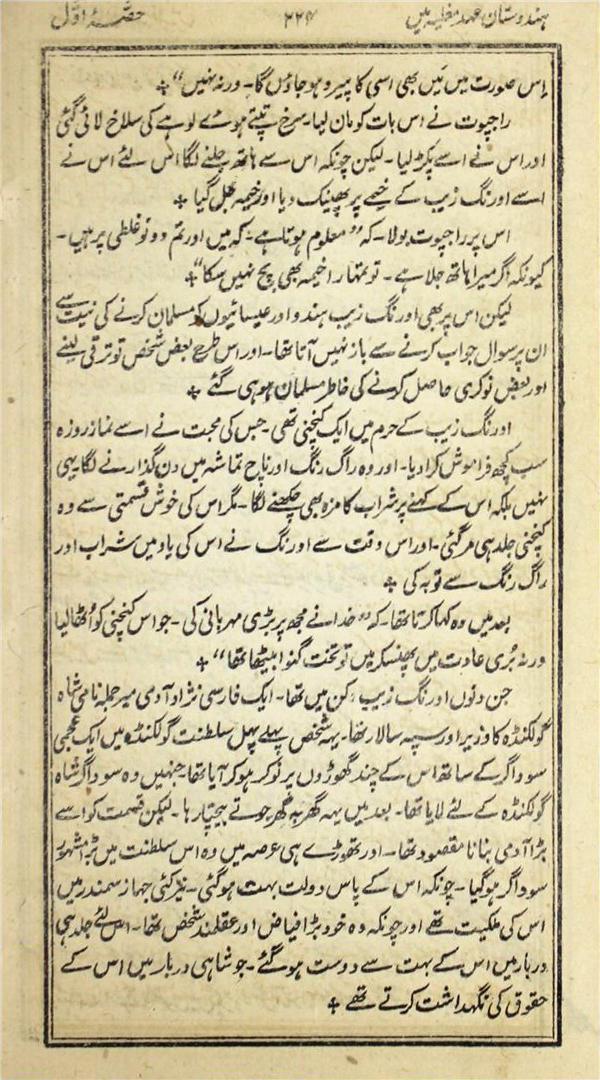 ہندوستان عہد مغلیہ میں ۲۲۴ حصّہ اوّل
اِس صورت میں مَیں بھی اسی کا پیرو ہو جاؤں گا۔ ورنہ نہیں“ ٭
راجپوت نے اس بات کو مان لیا۔ سرخ تپتے ہوئے لوہے کی سلاخ لائی گئی
اور اس نے اسے پکڑ لیا۔ لیکن چونکہ اس سے ہاتھ جلنے لگا اس لئے اس نے
اسے اورنگ زیب کے خیمے پر پھینک دیا اور خیمہ جل گیا ٭
اس پر راجپوت بولا۔ کہ ”معلوم ہوتا ہے۔ کہ میں اور تم دونو غلطی پر ہیں۔
کیونکہ اگر میرا ہاتھ جلا ہے۔ تو تمہارا خیمہ بھی بچ نہیں سکا“ ٭
لیکن اس پر بھی اورنگ زیب ہندو اور عیسائیوں کو مسلمان کرنے کی نیت سے
ان پر سوال جواب کرنے سے باز نہیں آتا تھا۔ اور اس طرح بعض شخص تو ترقی لینے
اور بعض نوکری حاصل کرنے کی خاطر مسلمان ہو ہی گئے ٭
اورنگ زیب کے حرم میں ایک کنچنی تھی۔ جس کی محبت نے اسے نماز روزہ
سب کچھ فراموش کرا دیا۔ اور وہ راگ رنگ اور ناچ تماشہ میں دن گذارنے لگا یہی
نہیں بلکہ اس کے کہنے پر شراب کا مزہ بھی چکھنے لگا۔ مگر اس کی خوش قسمتی سے وہ
کنچنی جلد ہی مر گئی۔ اور اس وقت سے اورنگ نے اس کی یاد میں شراب اور
راگ رنگ سے توبہ کی ٭
بعد میں وہ کہا کرتا تھا۔ کہ ”خدا نے مجھ پر بڑی مہربانی کی۔ جو اس کنچنی کو اُٹھا لیا
ورنہ بُری عادت میں پھنسکر میں تو تخت گنوا بیٹھا تھا“ ٭
جن دنوں اورنگ زیب دکن میں تھا۔ ایک فارسی نژاد آدمی میر جملہ نامی شاہ
گولکنڈہ کا وزیر اور سپہ سالار تھا۔ یہہ شخص پہلے پہل سلطنت گولکنڈہ میں ایک عجمی
سوداگر کے ساتھ اس کے چند گھوڑوں پر نوکر ہو کر آیا تھا۔ جنہیں وہ سوداگر شاہ
گولکنڈہ کے لئے لایا تھا۔ بعد میں یہہ گھر بہ گھر جوتے بیچتا رہا۔ لیکن قسمت کو اسے
بڑا آدمی بنانا مقصود تھا۔ اور تھوڑے ہی عرصہ میں وہ اس سلطنت میں بڑا مشہور
سوداگر ہو گیا۔ چونکہ اس کے پاس دولت بہت ہو گئی۔ نیز کئی جہاز سمندر میں
اس کی ملکیت تھے اور چونکہ وہ خود بڑا فیاض اور عقلمند شخص تھا۔ اس لئے جلد ہی
دربار میں اس کے بہت سے دوست ہو گئے۔ جو شاہی دربار میں اس کے
حقوق کی نگہداشت کرتے تھے ٭